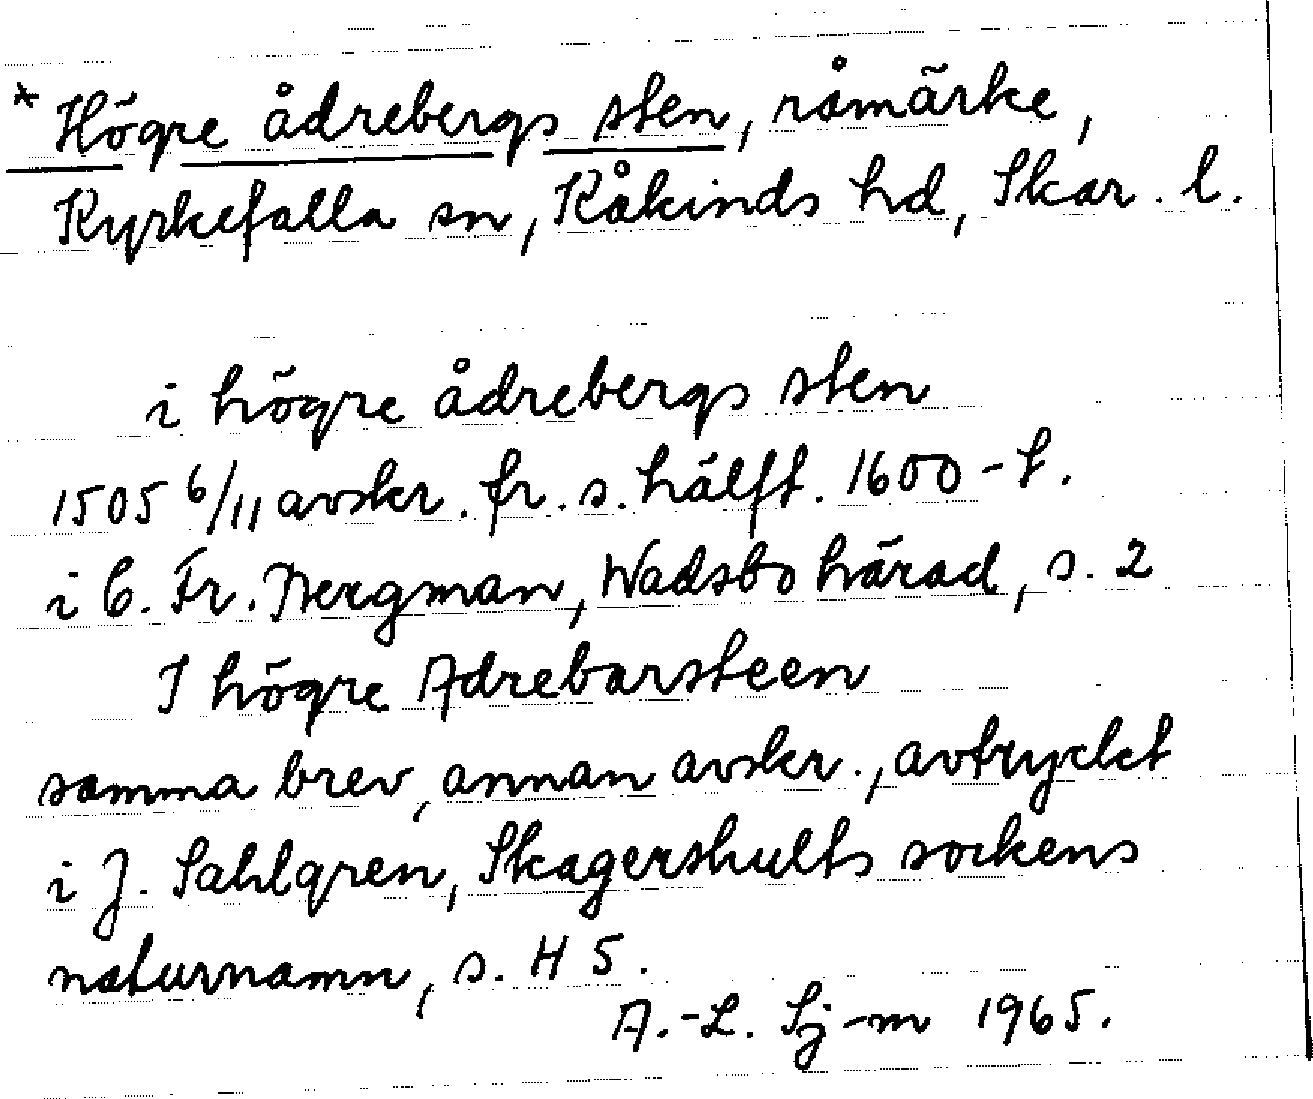 * Högre ådrebergs sten, råmärke,
Kyrkefalla sn, Kåkinds hd, Skar. l.
i högre ådrebergs sten
1505 6/11 avskr. fr. s. hälft. 1600-t.
i C. Fr. Bergman, Wadsbo härad, s. 2
I högre Adrebarsteen
samma brev, annan avskr., avtryckt
i J. Sahlgren, Skagershults sockens
naturnamn, s. H 5.
A.-L. Sj-m 1965.